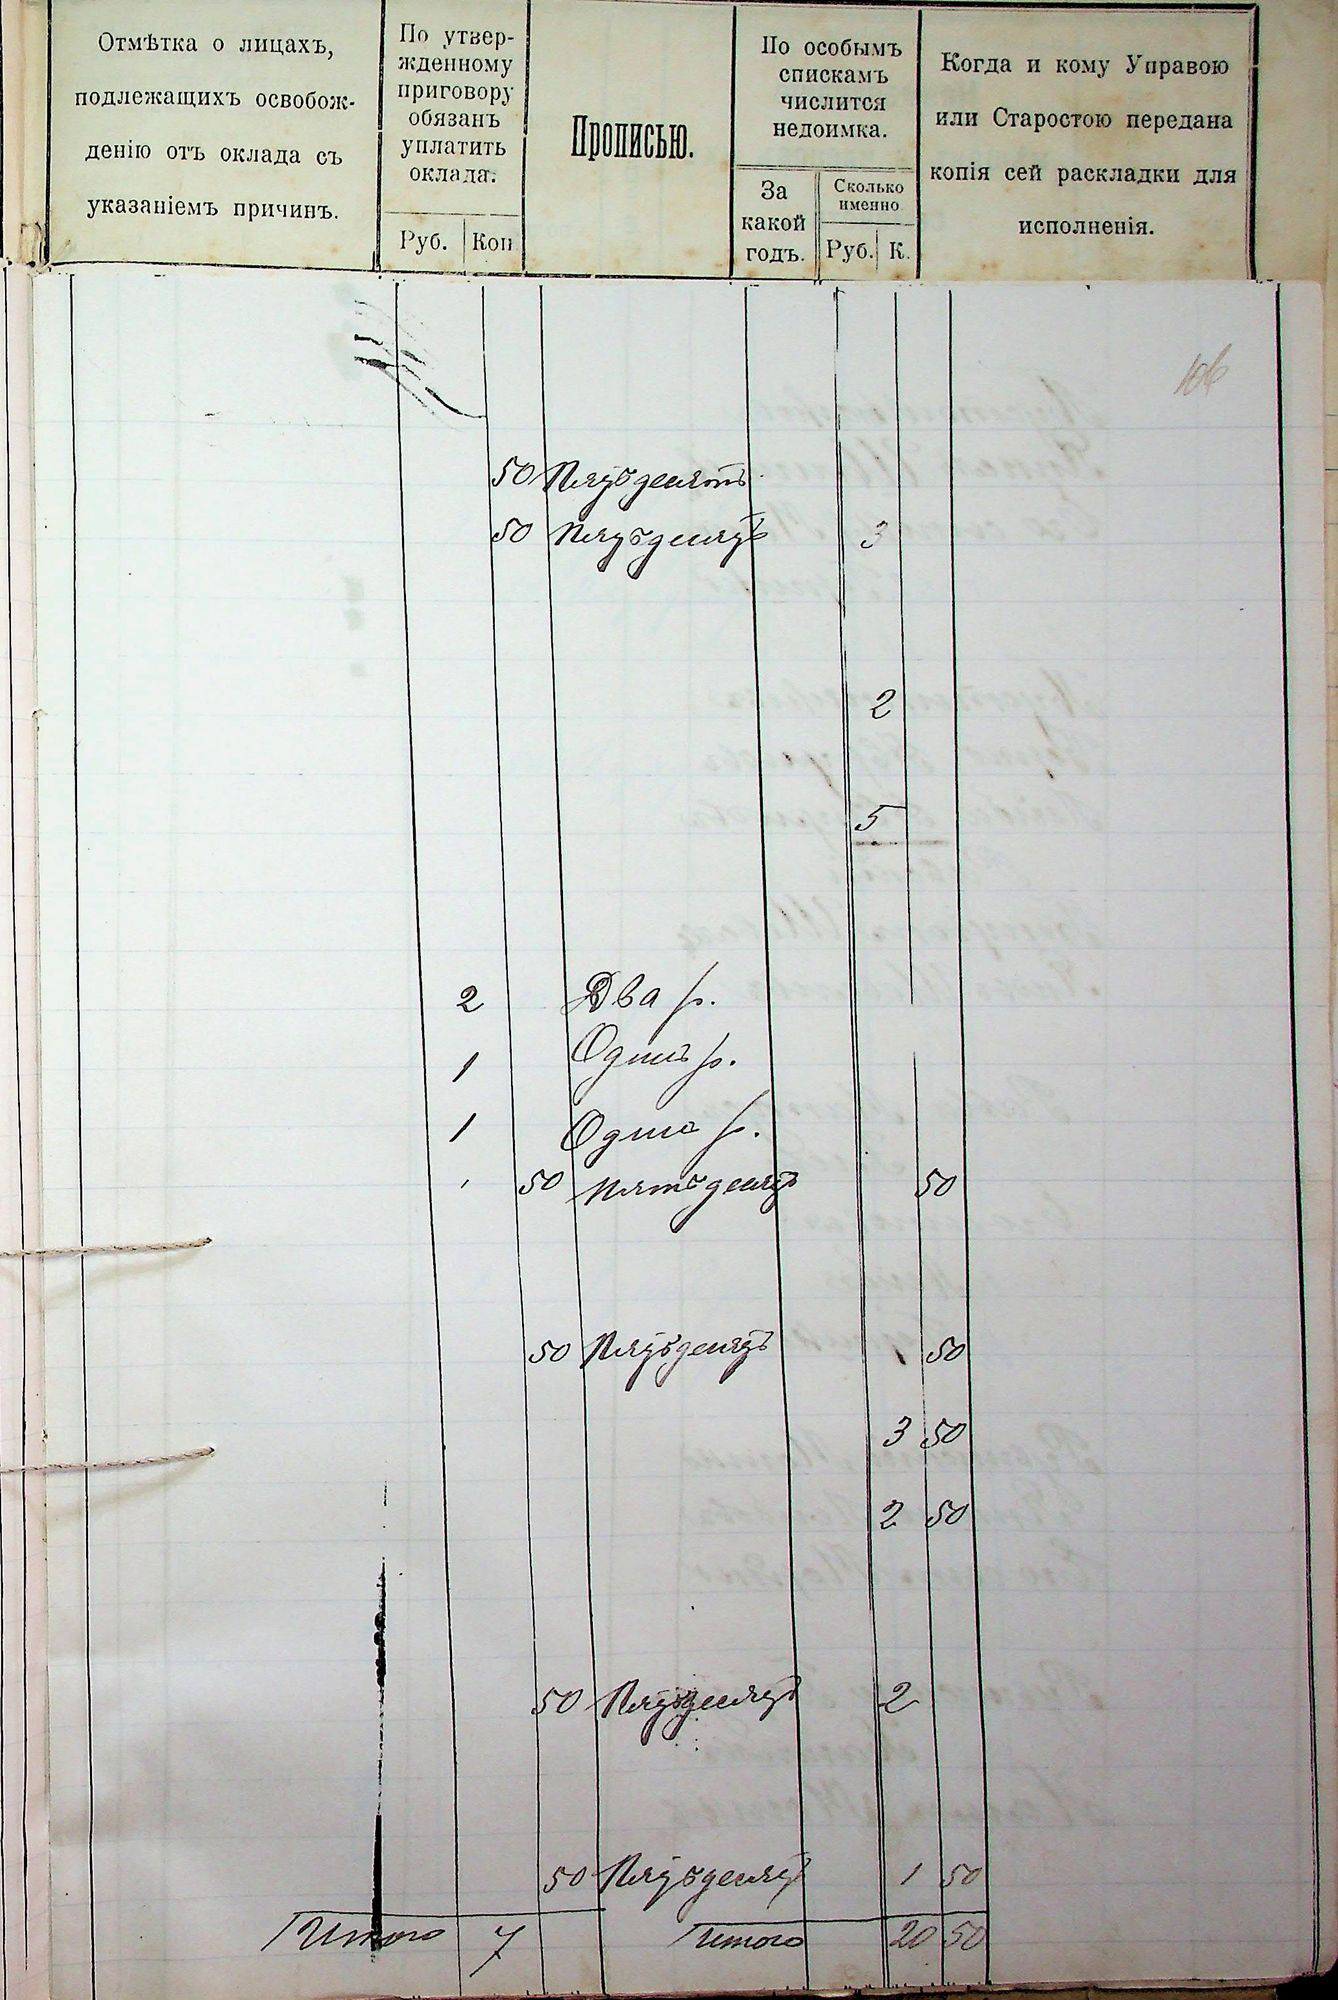 Отмѣтка о лицахъ,
подлежащихъ освобож-
денію отъ оклада съ
указаніемъ причинъ.
По утвер-
жденному
приговору
обязанъ
уплатить
оклада.
Руб. Коп
Прописью.
По особымъ
спискамъ
числится
недоимка.
За
какой
годъ.
Сколько
именно
Руб. К.
Когда и кому Управою
или Старостою передана
копія сей раскладки для
исполненія.
106
50 Пятьдесятъ
50 Пятьдесятъ 3
2
5
2 Два р.
1 Одинъ р.
1 Одинъ р.
50 Пятьдесятъ 50
50 Пятьдесятъ 50
3 50
2 50
50 Пятьдесятъ 2
50 Пятьдесятъ 1 50
Итого 7 Итого 20 50